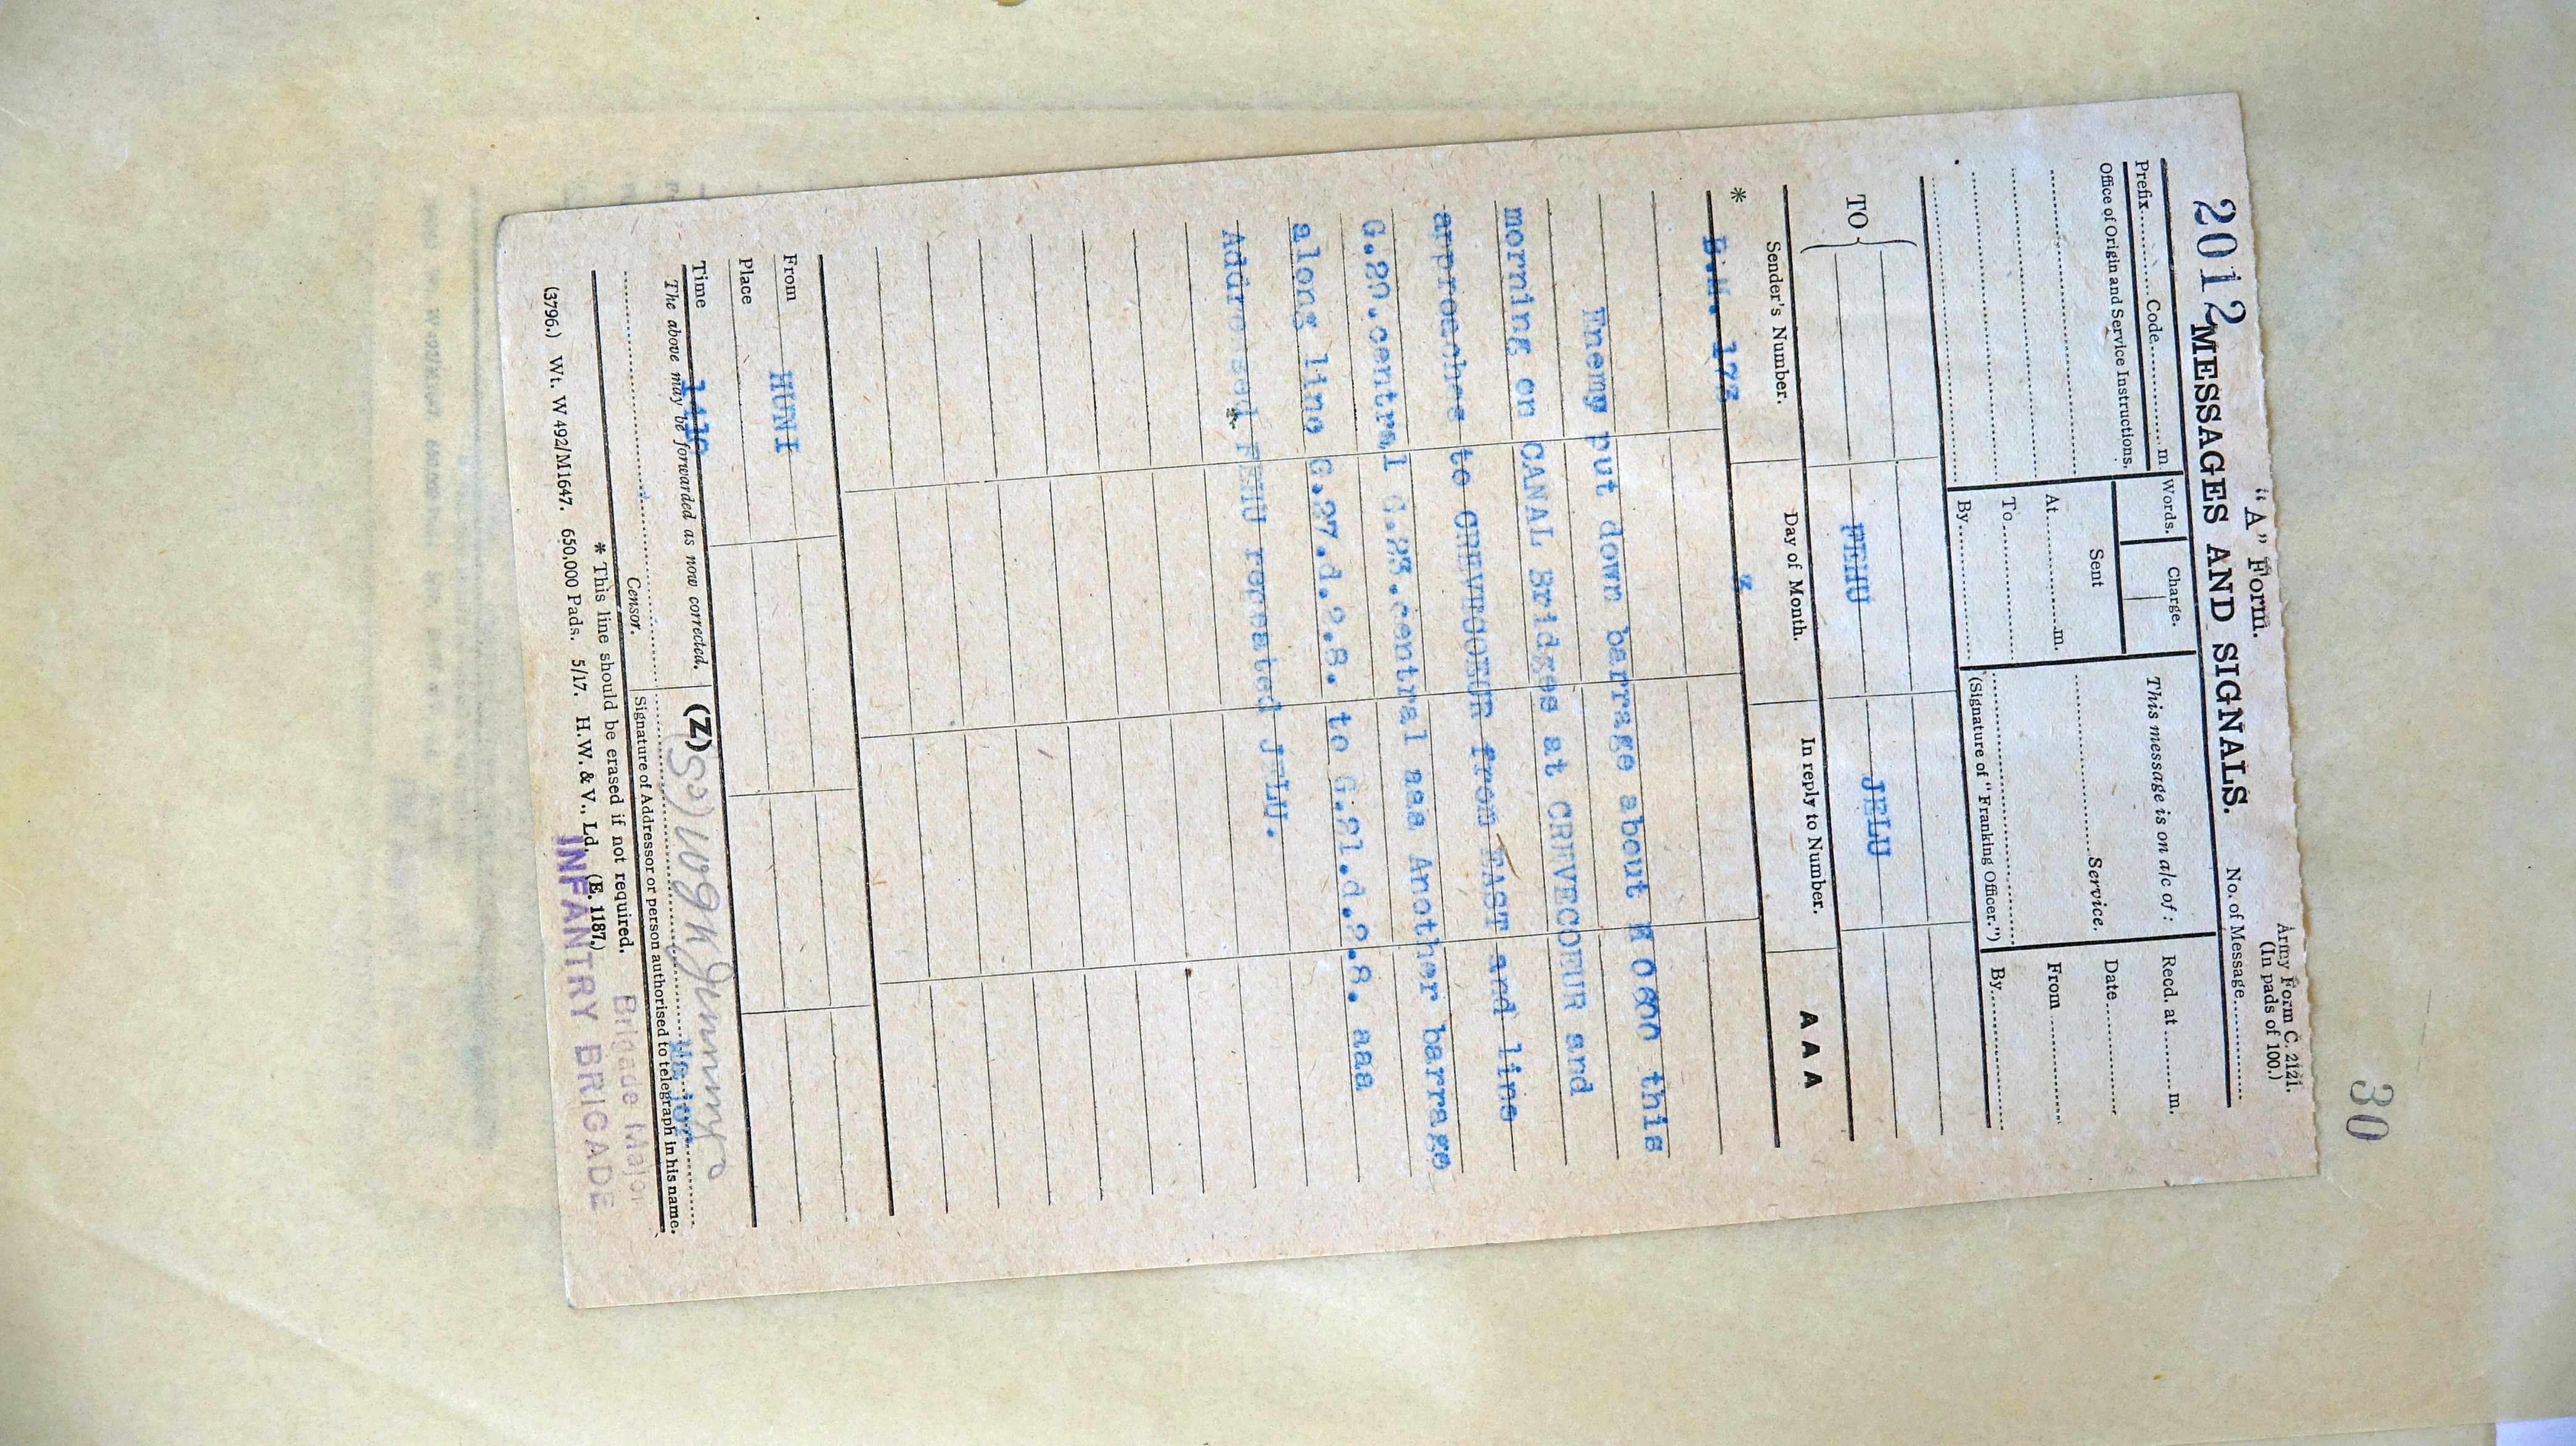 30
"A" Form.
Army Form C. 2121.
(In pads of 100.)
2012 MESSAGES AND SIGNALS.
No. of Message
Prefix Code m
Words.
Charge.
This message is on a/c of :
Recd. at m.
Office of Origin and Service Instructions.
Sent
Service.
Date
At m.
From
To
By
(Signature of "Franking Officer.")
By
TO
FEHU
JELU
Sender's Number.
Day of Month.
In reply to Number.
AAA
* B.M. 173
Enemy put down barrage about this
morning on CANAL Bridges at CREVECOEUR and
approaches to CREVECOEUR from EAST and line
G.20.central G.23.central aaa Another barrage
along line G.27.d.2.8. to G.21.d.2.8. aaa
Addressed FEHU repeated JELU.
From HUNI
Place
Time
The above may be forwarded as now corrected.
(Z)
Major
Censor.
Signature of Addressor or person authorised to telegraph in his name.
Brigade Major
* This line should be erased if not required.
(3796.) Wt. W 492/M1647. 650,000 Pads. 5/17. H.W. & V., Ld. (E. 1187.)
INFANTRY BRIGADE